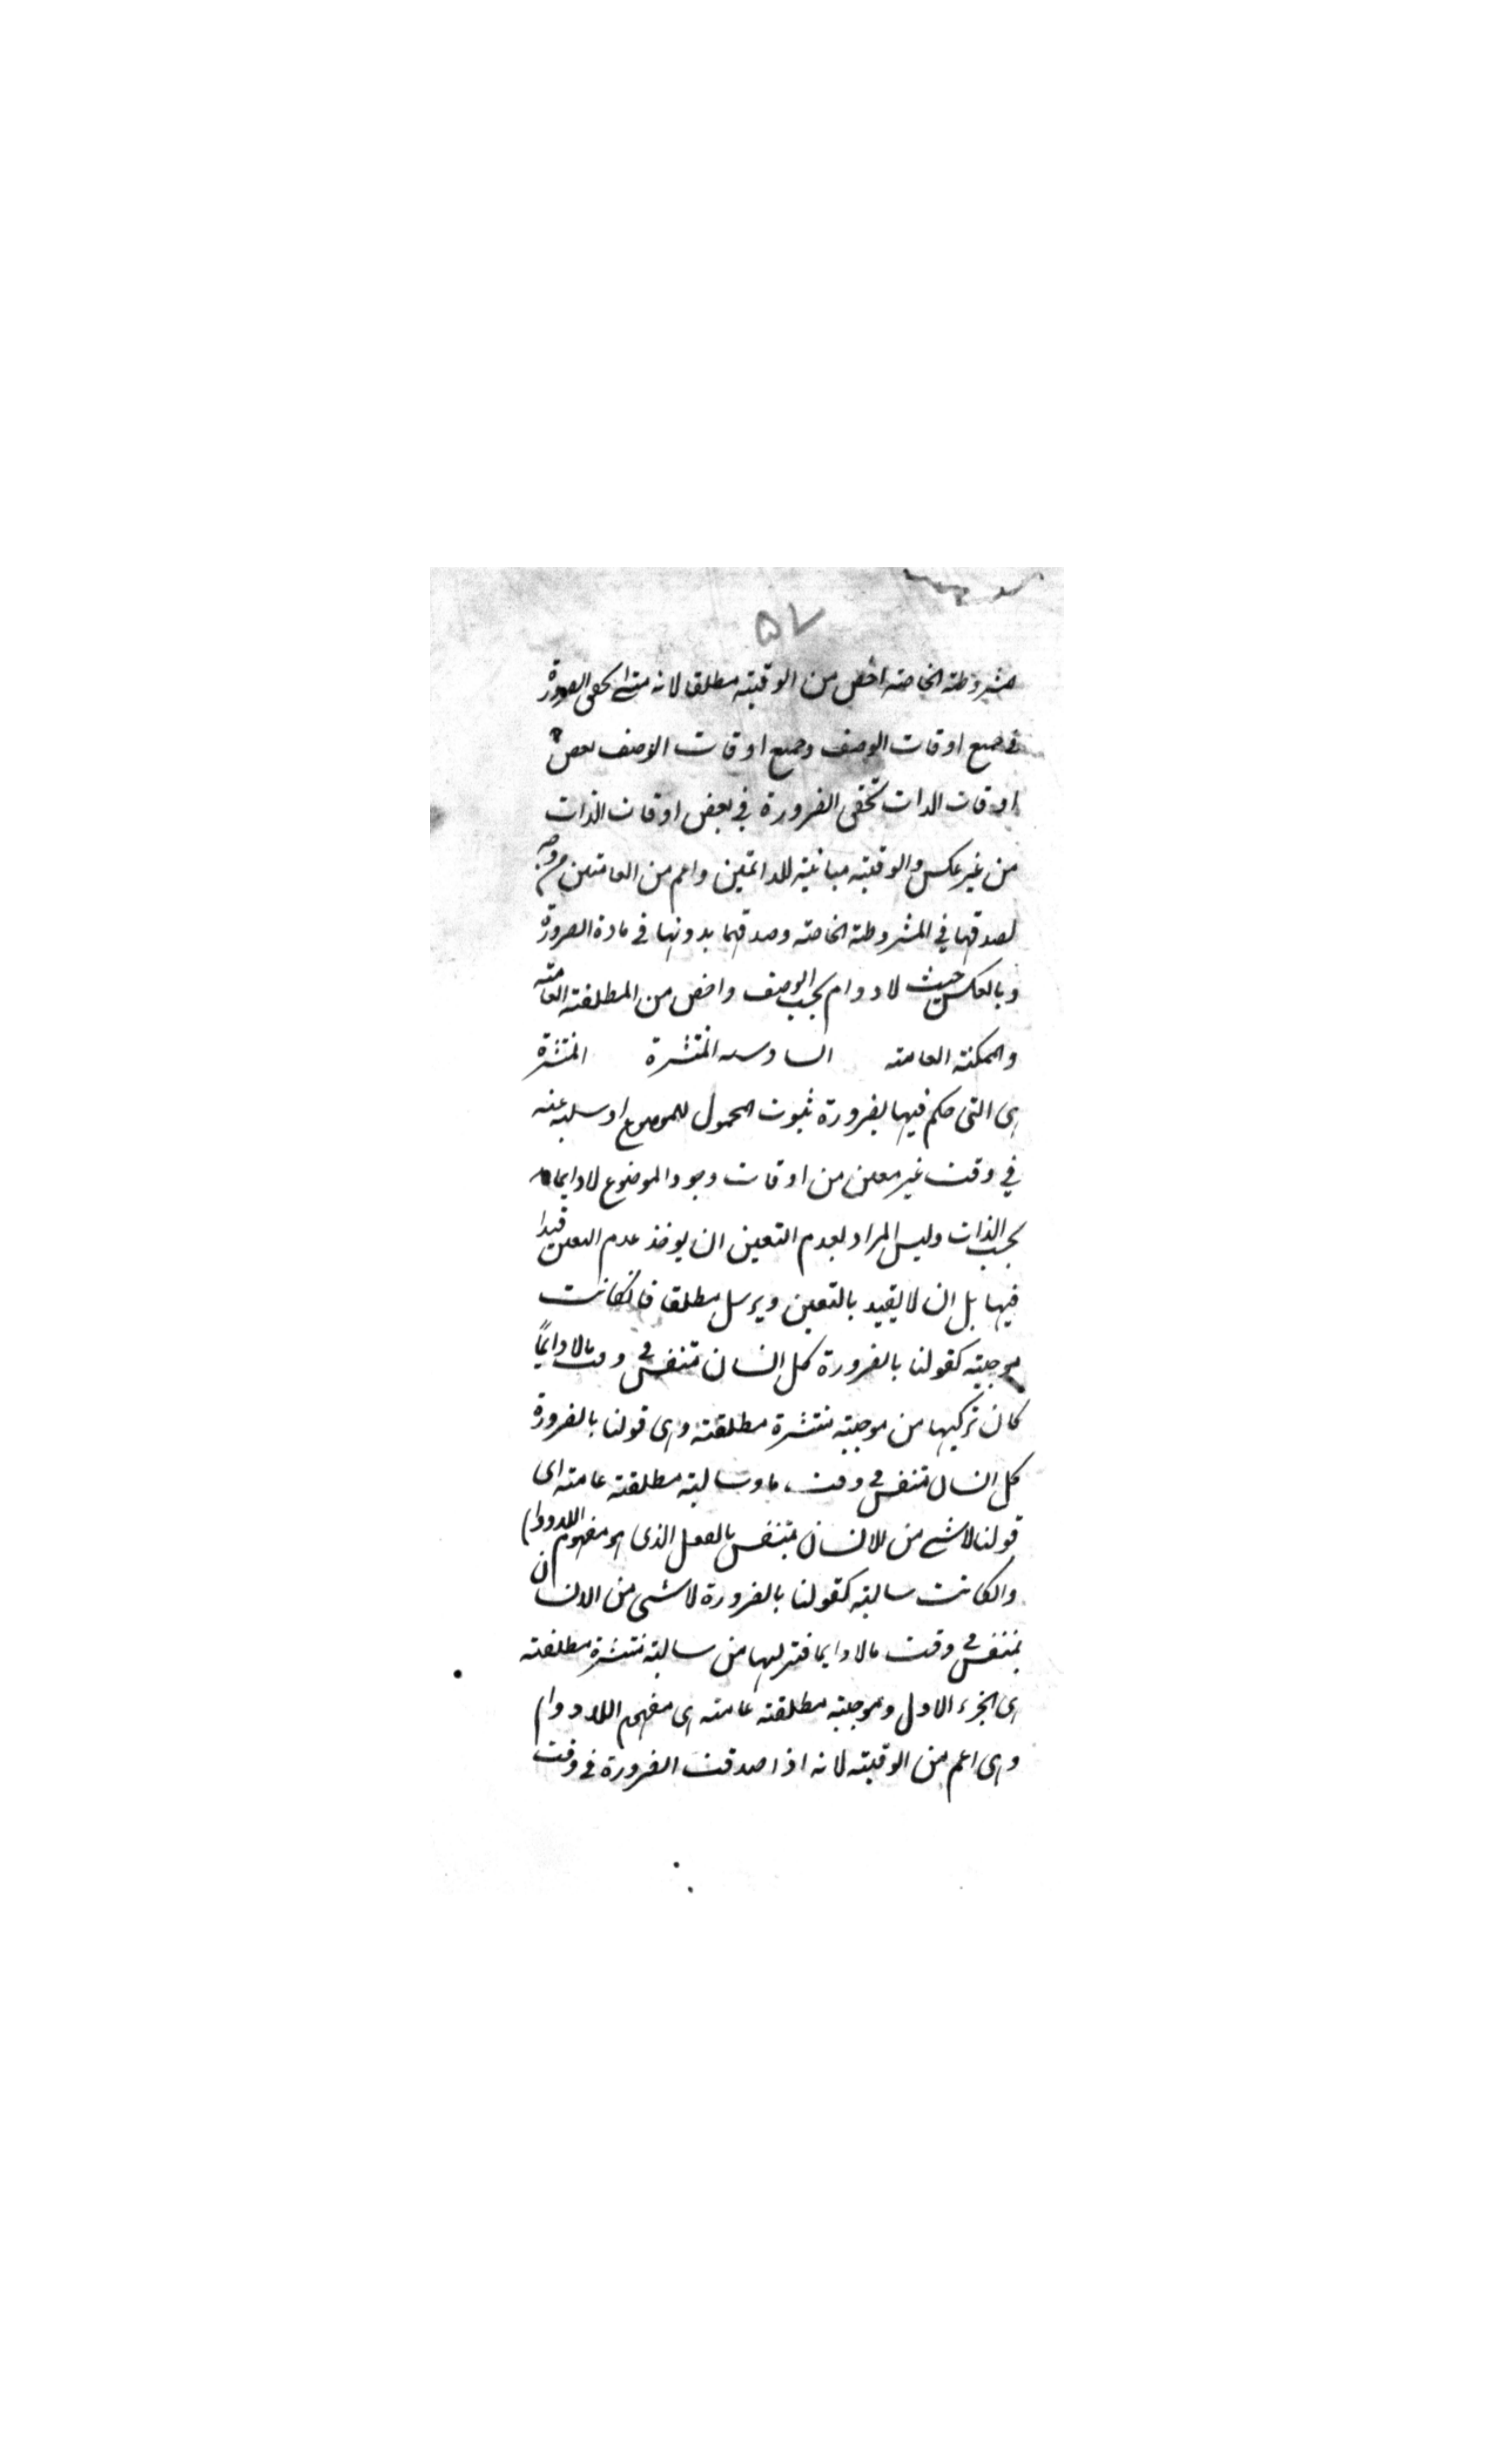 ۵۷
المشروطة الخاصة اخص من الوقتية مطلقا لانه متى تحقق الضرورة
فى جميع اوقات الوصف وجميع اوقات الوصف بعض
اوقات الذات تحقق الضرورة فى بعض اوقات الذات
من غير عكس والوقتية مباينة للدائمتين واعم من العامتين من وجه
لصدقها فى المشروطة الخاصة وصدقهما بدونها فى مادة الضرورة
وبالعكس حيث لا دوام بحسب الوصف واخص من المطلقة العامة
والممكنة العامة السادسة المنتشرة المنتشرة
هى التى حكم فيها بضرورة ثبوت المحمول للموضوع او سلبه عنه
فى وقت غير معين من اوقات وجود الموضوع لا دايما
بحسب الذات وليس المراد بعدم التعين ان يوخذ عدم التعين قيدا
فيها بل ان لا يقيد بالتعين ويرسل مطلقا فانكانت
موجبة كقولنا بالضرورة كل انسان متنفس فى وقت ما لا دايماً
كان تركيبها من موجبة منتشرة مطلقة وهى قولنا بالضرورة
كل انسان متنفس فى وقت ما وسالبة مطلقة عامة اى
قولنا لا شى من الانسان بمتنفس بالفعل الذى هو مفهوم اللادوام
وانكانت سالبة كقولنا بالضرورة لا شى من الانسان
بمتنفس فى وقت ما لا دايما فتركيبها من سالبة منتشرة مطلقة
هى الجزء الاول وموجبة مطلقة عامة هى مفهوم اللادوام
وهى اعم من الوقتية لانه اذا صدقت الضرورة فى وقت